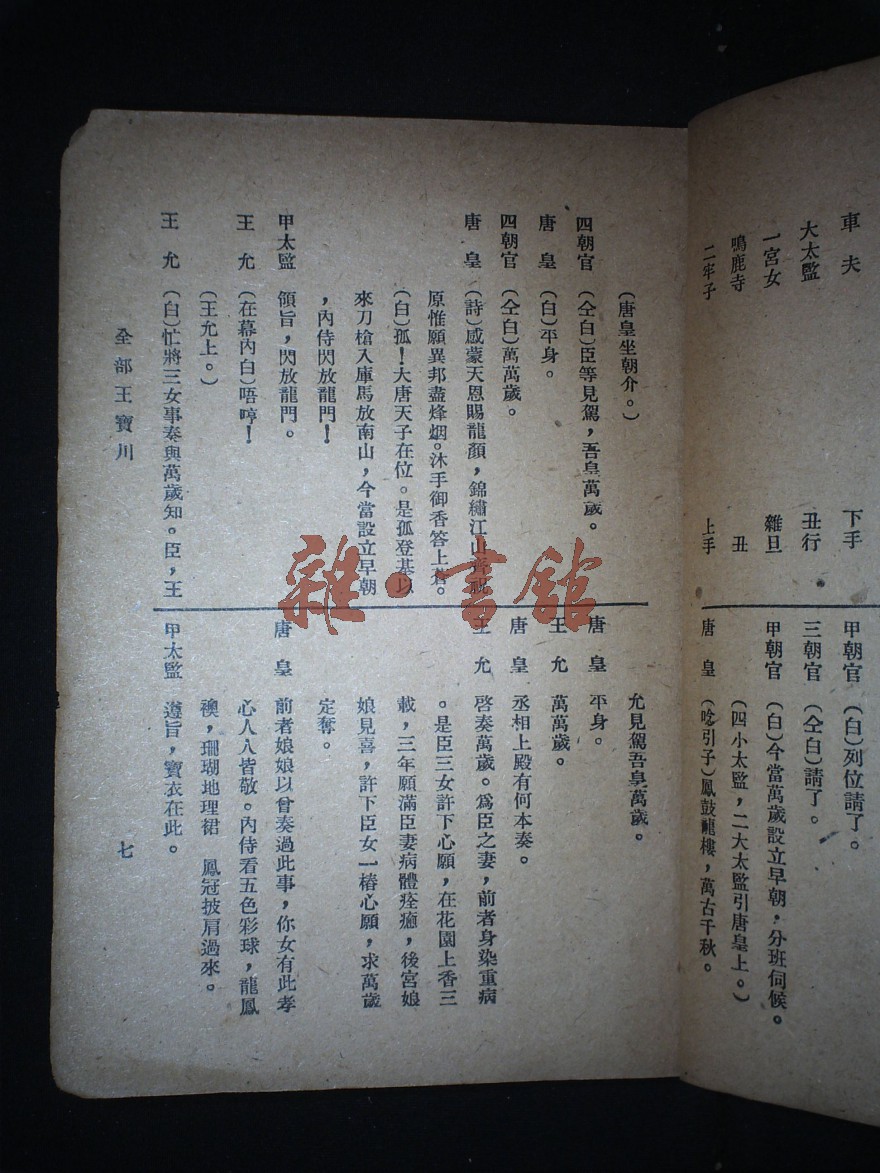 車夫　下手
大太監　丑行
一宮女　雜旦
鳴鹿寺　丑
二牢子　上手
甲朝官　(白)列位請了。
三朝官　(仝白)請了。
甲朝官　(白)今當萬歲設立早朝，分班伺候。
(四小太監，二大太監引唐皇上。)
唐皇　(唸引子)鳳鼓龍樓，萬古千秋。
(唐皇坐朝介。)
四朝官　(仝白)臣等見駕，吾皇萬歲。
唐皇　(白)平身。
四朝官　(仝白)萬萬歲。
唐皇　(詩)感蒙天恩賜龍顏，錦繡江山齊祝
原惟願異邦盡烽烟。沐手御香答上蒼。
(白)孤！大唐天子在位。是孤登基以
來刀槍入庫馬放南山，今當設立早朝
，內侍閃放龍門！
甲太監　領旨，閃放龍門。
王允　(在幕內白)唔哼！
(王允上。)
王允　(白)忙將三女事奏與萬歲知。臣，王
允見駕吾皇萬歲。
唐皇　平身。
王允　萬萬歲。
唐皇　丞相上殿有何本奏。
王允　啓奏萬歲。爲臣之妻，前者身染重病
。是臣三女許下心願，在花園上香三
載，三年願滿臣妻病體痊癒，後宮娘
娘見喜，許下臣女一樁心願，求萬歲
定奪。
唐皇　前者娘娘以曾奏過此事，你女有此孝
心人人皆敬。內侍看五色彩球，龍鳳
襖，珊瑚地理裙　鳳冠披肩過來。
甲太監　遵旨，寶衣在此。
全部王寶川　七
雜·書館